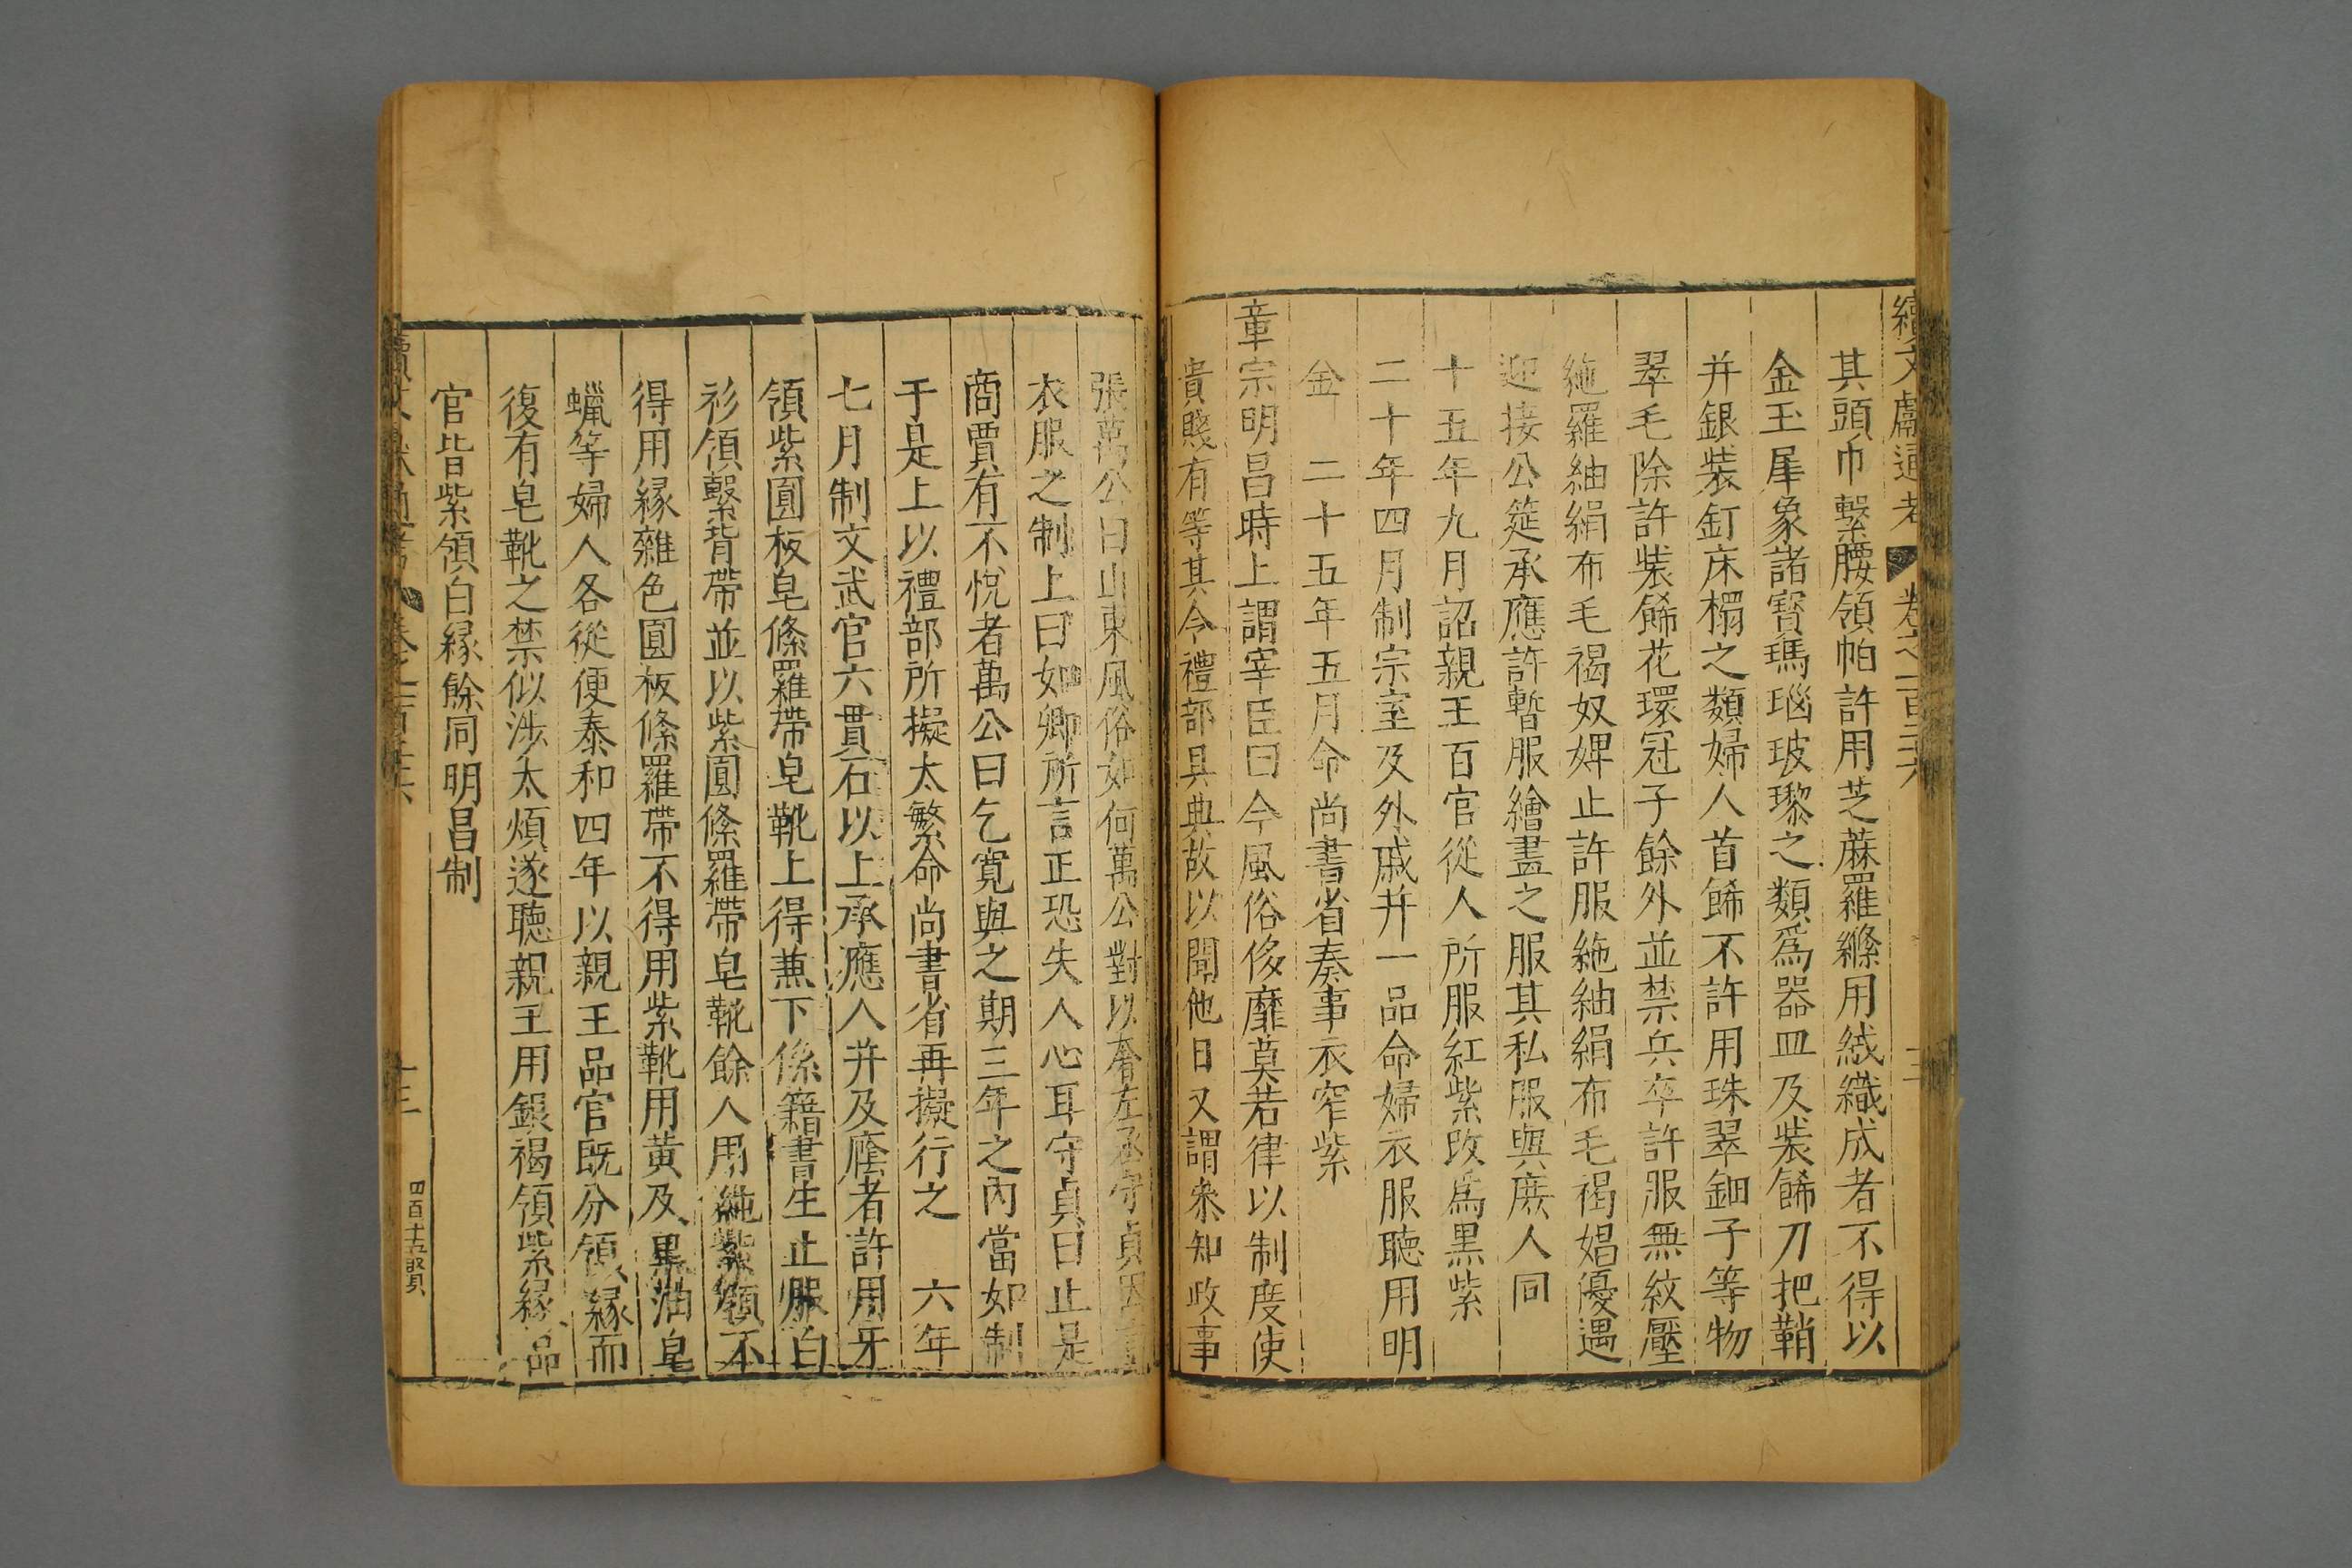 續文獻通考 卷之一百二六
其頭巾繫腰領帕許用芝蔴羅縧用絨織成者不得以
金玉犀象諸寳瑪瑙玻瓈之類爲器皿及裝餙刀把鞘
并銀裝釘床榻之類婦人首餙不許用珠翠鈿子等物
翠毛除許裝餙花環冠子餘外並禁兵卒許服無紋壓
絁羅紬絹布毛褐奴婢止許服絁紬絹布毛褐娼優遇
迎接公筵承應許暫服繪畫之服其私服與庶人同
十五年九月詔親王百官從人所服紅紫改爲黑紫
二十年四月制宗室及外戚并一品命婦衣服聽用明
金 二十五年五月命尚書省奏事衣窄紫
章宗明昌時上謂宰臣曰今風俗侈靡莫若律以制度使
貴賤有等其令禮部具典故以聞他日又謂叅知政事
張萬公曰山東風俗如何萬公對以奢左丞守貞因
衣服之制上曰如卿所言正恐失人心耳守貞曰止是
商賈有不悅者萬公曰乞寬與之期三年之內當如制
于是上以禮部所擬太繁命尚書省再擬行之 六年
七月制文武官六貫石以上承應人并及廕者許用牙
領紫圓板皂絛羅帶皂靴上得兼下係籍書生止服白
衫領繫背帶並以紫圓絛羅帶皂靴餘人用純紫領不
得用緣雜色圓板絛羅帶不得用紫靴用黃及黑油皂
蠟等婦人各從便泰和四年以親王品官既分領緣而
復有皂靴之禁似涉太煩遂聽親王用銀褐領紫緣品
官皆紫領白緣餘同明昌制
十三
四百十五 賢